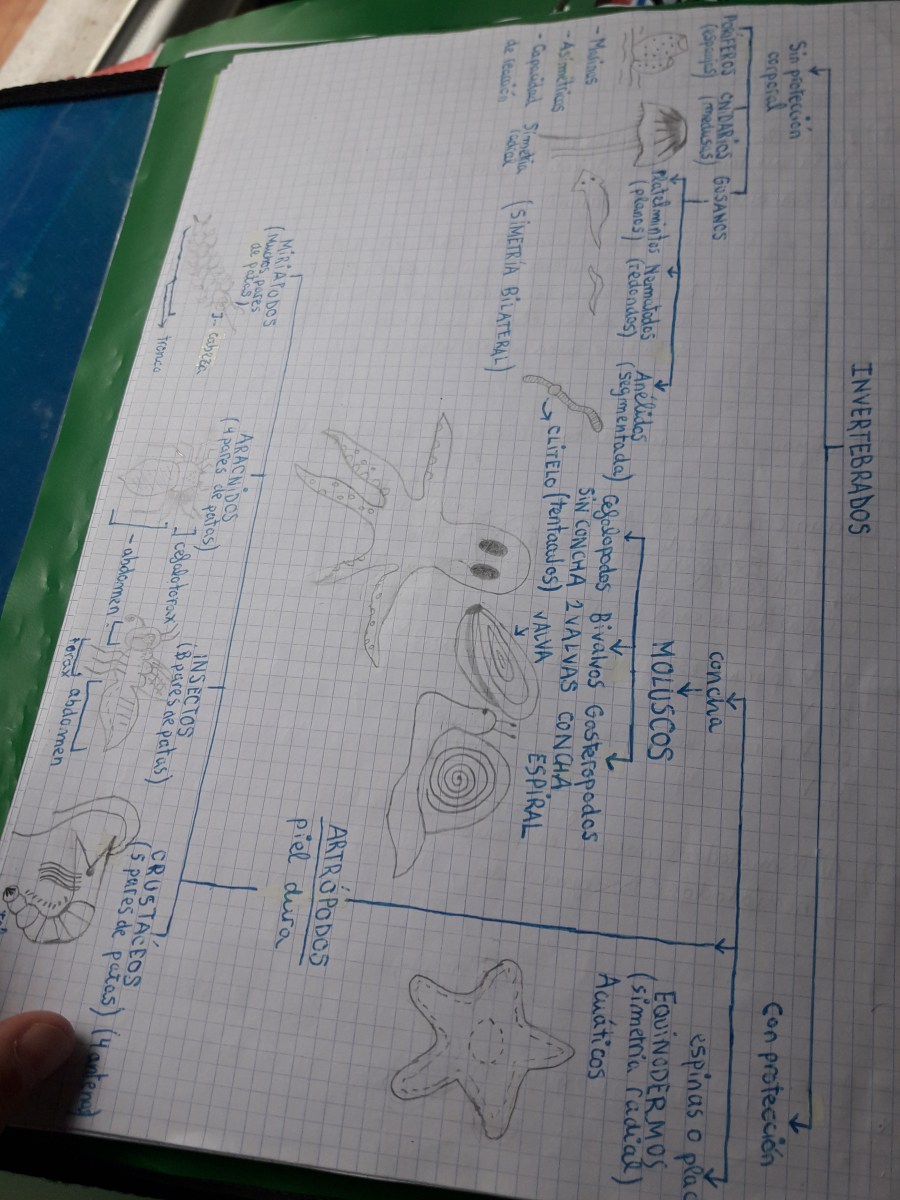 INVERTEBRADOS
Sin protección
corporal
Con protección
concha
espinas o plac
PORÍFEROS
(esponjas)
CNIDARIOS
(medusas)
GUSANOS
MOLUSCOS
EQUINODERMOS
(simetría radial)
Acuáticos
- Marinos
- Asimétricos
- Capacidad
de
Simetría
radial
Platelmintos
(planos)
Nematodos
(redondos)
Anélidos
(segmentada)
CLITELO
(SIMETRÍA BILATERAL)
Cefalopodos
SIN CONCHA
(tentaculos)
Bivalvos
2 VALVAS
VALVA
Gasteropodos
CONCHA
ESPIRAL
ARTRÓPODOS
piel dura
MIRIÁPODOS
(Muchos pares
de patas)
- cabeza
tronco
ARACNIDOS
(4 pares de patas)
cefalotorax
- abdomen
INSECTOS
(3 pares de patas)
torax
abdomen
CRUSTÁCEOS
(5 pares de patas) (4 antenas